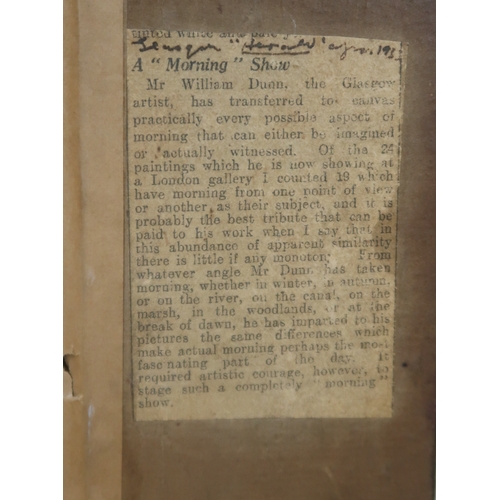 tinted white and pale y
Glasgow "Herald"
A "Morning" Show
Mr William Dunn, the Glasgow
artist, has transferred to canvas
practically every possible aspect of
morning that can either be imagined
or actually witnessed. Of the
paintings which he is now showing at
a London gallery I counted 19 which
have morning from one point of view
or another as their subject, and it is
probably the best tribute that can be
paid to his work when I say that in
this abundance of apparent similarity
there is little if any monotony. From
whatever angle Mr Dunn has taken
morning, whether in winter, in autumn,
or on the river, on the canal, on the
marsh, in the woodlands, or at the
break of dawn, he has imparted to his
pictures the same differences which
make actual morning perhaps the most
fascinating part of the day. It
required artistic courage, however, to
stage such a completely "morning"
show.